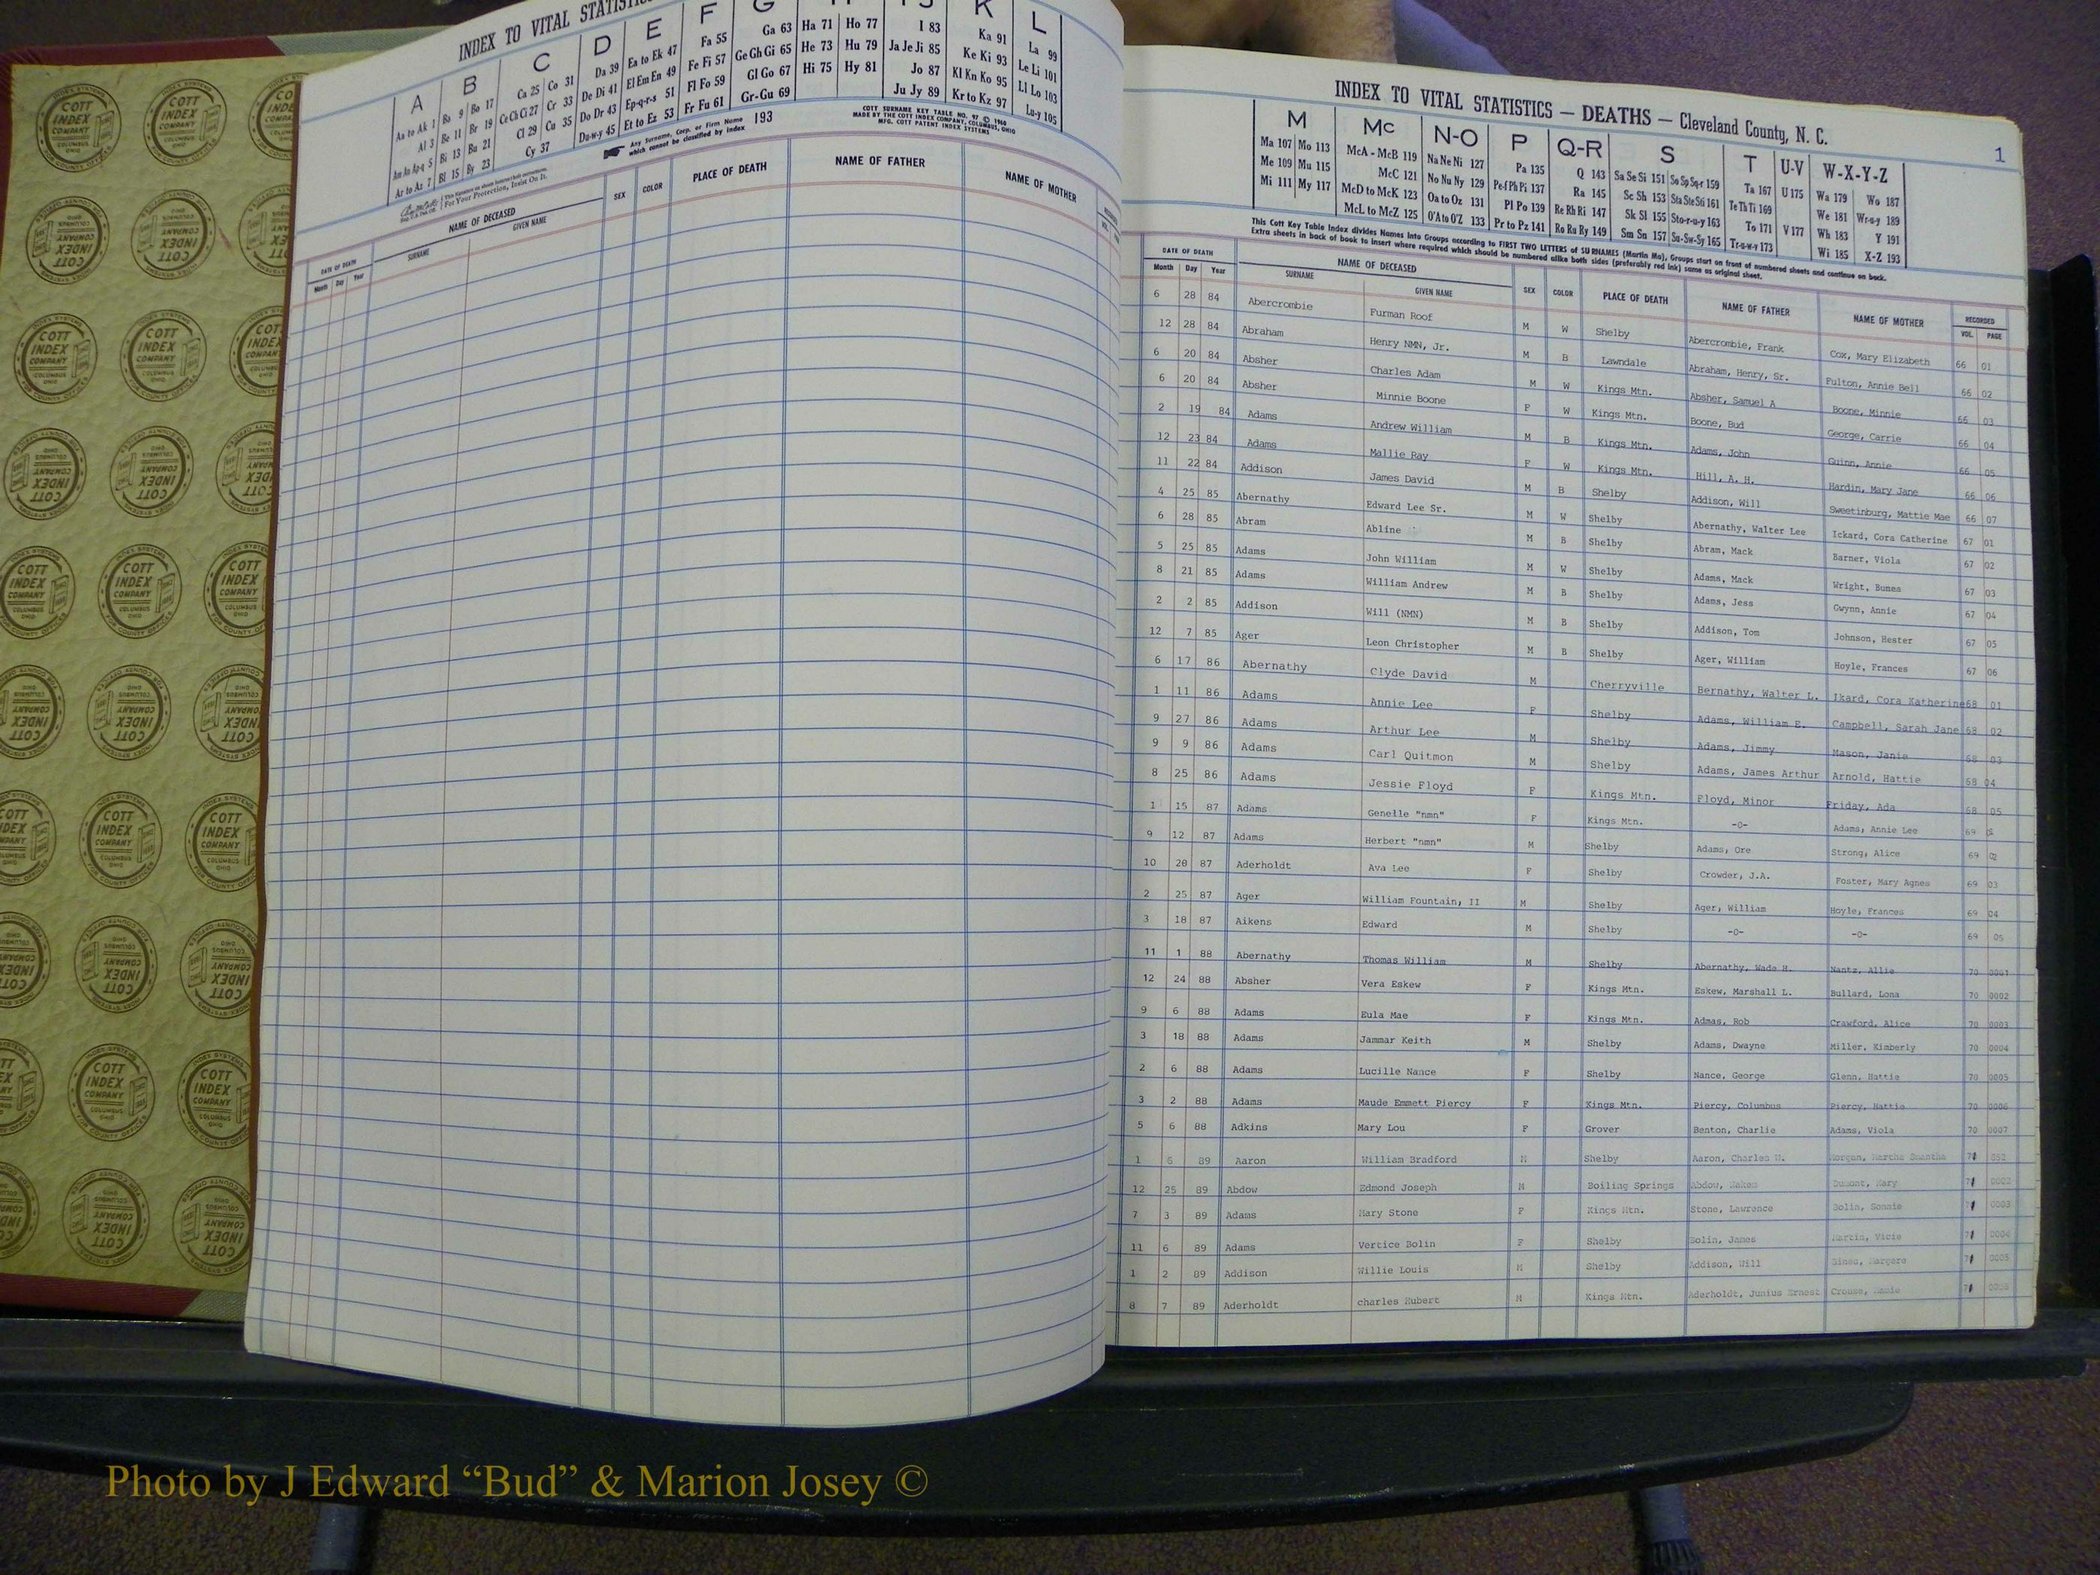 INDEX TO VITAL STATISTICS
A B C D E F G H I J K L
Aa to Ak 1
Al 3
Am An Ap-q 5
Ar to Az 7
Ba 9
Be 11
Bi 13
Bl 15
Bo 17
Br 19
Bu 21
By 23
Ca 25
Ce Ch Ci 27
Cl 29
Co 31
Cr 33
Cu 35
Cy 37
Da 39
De Di 41
Do Dr 43
Du-w-y 45
Ea to Ek 47
El Em En 49
Ep-q-r-s 51
Et to Ez 53
Fa 55
Fe Fi 57
Fl Fo 59
Fr Fu 61
Ga 63
Ge Gh Gi 65
Gl Go 67
Gr-Gu 69
Ha 71
He 73
Hi 75
Ho 77
Hu 79
Hy 81
I 83
Ja Je Ji 85
Jo 87
Ju Jy 89
Ka 91
Ke Ki 93
Kl Kn Ko 95
Kr to Kz 97
La 99
Le Li 101
Ll Lo 103
Lu-y 105
Any Surname, Corp. or Firm Name which cannot be classified by Index 193
COTT SURNAME KEY TABLE NO. 97 © 1960
MADE BY THE COTT INDEX COMPANY, COLUMBUS, OHIO
MFG. COTT PATENT INDEX SYSTEMS
For Your Protection, Insist On It.
DATE OF DEATH
Month Day Year
NAME OF DECEASED
SURNAME GIVEN NAME
SEX COLOR PLACE OF DEATH NAME OF FATHER NAME OF MOTHER
INDEX TO VITAL STATISTICS — DEATHS — Cleveland County, N. C.
1
M Mc N-O P Q-R S T U-V W-X-Y-Z
Ma 107
Me 109
Mi 111
Mo 113
Mu 115
My 117
McA - McB 119
McC 121
McD to McK 123
McL to McZ 125
Na Ne Ni 127
No Nu Ny 129
Oa to Oz 131
O'A to O'Z 133
Pa 135
Pe-f Ph Pi 137
Pl Po 139
Pr to Pz 141
Q 143
Ra 145
Re Rh Ri 147
Ro Ru Ry 149
Sa Se Si 151
Sc Sh 153
Sk Sl 155
Sm Sn 157
So Sp Sq-r 159
Sta Ste Sti 161
Sto-r-u-y 163
Su-Sw-Sy 165
Ta 167
Te Th Ti 169
To 171
Tr-u-w-y 173
U 175
V 177
Wa 179
We 181
Wh 183
Wi 185
Wo 187
Wr-u-y 189
Y 191
X-Z 193
This Cott Key Table Index divides Names into Groups according to FIRST TWO LETTERS of SURNAMES (Martin Ma), Groups start on front of numbered sheets and continue on back.
Extra sheets in back of book to insert where required which should be numbered alike both sides (preferably red ink) same as original sheet.
DATE OF DEATH
Month Day Year
NAME OF DECEASED
SURNAME GIVEN NAME
SEX COLOR PLACE OF DEATH NAME OF FATHER NAME OF MOTHER
RECORDED
VOL. PAGE
6 28 84 Abercrombie Furman Roof M W Shelby Abercrombie, Frank Cox, Mary Elizabeth 66 01
12 28 84 Abraham Henry NMN, Jr. M B Lawndale Abraham, Henry, Sr. Fulton, Annie Bell 66 02
6 20 84 Absher Charles Adam M W Kings Mtn. Absher, Samuel A Boone, Minnie 66 03
6 20 84 Absher Minnie Boone F W Kings Mtn. Boone, Bud George, Carrie 66 04
2 19 84 Adams Andrew William M B Kings Mtn. Adams, John Guinn, Annie 66 05
12 23 84 Adams Mallie Ray F W Kings Mtn. Hill, A. H. Hardin, Mary Jane 66 06
11 22 84 Addison James David M B Shelby Addison, Will Sweetinburg, Mattie Mae 66 07
4 25 85 Abernathy Edward Lee Sr. M W Shelby Abernathy, Walter Lee Ickard, Cora Catherine 67 01
6 28 85 Abram Abline M B Shelby Abram, Mack Barner, Viola 67 02
5 25 85 Adams John William M W Shelby Adams, Mack Wright, Bunea 67 03
8 21 85 Adams William Andrew M B Shelby Adams, Jess Gwynn, Annie 67 04
2 2 85 Addison Will (NMN) M B Shelby Addison, Tom Johnson, Hester 67 05
12 7 85 Ager Leon Christopher M B Shelby Ager, William Hoyle, Frances 67 06
6 17 86 Abernathy Clyde David M Cherryville Bernathy, Walter L. Ikard, Cora Katherine 68 01
1 11 86 Adams Annie Lee F Shelby Adams, William E. Campbell, Sarah Jane 68 02
9 27 86 Adams Arthur Lee M Shelby Adams, Jimmy Mason, Janie 68 03
9 9 86 Adams Carl Quitmon M Shelby Adams, James Arthur Arnold, Hattie 68 04
8 25 86 Adams Jessie Floyd F Kings Mtn. Floyd, Minor Friday, Ada 68 05
1 15 87 Adams Genelle "nmn" F Kings Mtn. -0- Adams, Annie Lee 69
9 12 87 Adams Herbert "nmn" M Shelby Adams, Ore Strong, Alice 69 02
10 20 87 Aderholdt Ava Lee F Shelby Crowder, J.A. Foster, Mary Agnes 69 03
2 25 87 Ager William Fountain, II M Shelby Ager, William Hoyle, Frances 69 04
3 18 87 Aikens Edward M Shelby -0- -0- 69 05
11 1 88 Abernathy Thomas William M Shelby Abernathy, Wade H. Nantz, Allie 70 0001
12 24 88 Absher Vera Eskew F Kings Mtn. Eskew, Marshall L. Bullard, Lona 70 0002
9 6 88 Adams Eula Mae F Kings Mtn. Admas, Rob Crawford, Alice 70 0003
3 18 88 Adams Jammar Keith M Shelby Adams, Dwayne Miller, Kimberly 70 0004
2 6 88 Adams Lucille Nance F Shelby Nance, George Glenn, Hattie 70 0005
3 2 88 Adams Maude Emmett Piercy F Kings Mtn. Piercy, Columbus Piercy, Hattie 70 0006
5 6 88 Adkins Mary Lou F Grover Benton, Charlie Adams, Viola 70 0007
1 6 89 Aaron William Bradford M Shelby Aaron, Charles W. Morgan, Martha 71
12 25 89 Abdow Edmond Joseph M Boiling Springs Abdow, Dumont, Mary 71 0002
7 3 89 Adams Mary Stone F Kings Mtn. Stone, Lawrence Bolin, 71 0003
11 6 89 Adams Vertice Bolin F Shelby Bolin, James Martin, Vicie 71 0004
1 2 89 Addison Willie Louis M Shelby Addison, Will 71 0005
8 7 89 Aderholdt charles Rubert M Kings Mtn. Aderholdt, Junius Ernest Crouse, 71
COTT INDEX COMPANY
COLUMBUS OHIO
INDEX SYSTEMS
FOR COUNTY OFFICES
Photo by J Edward “Bud” & Marion Josey ©